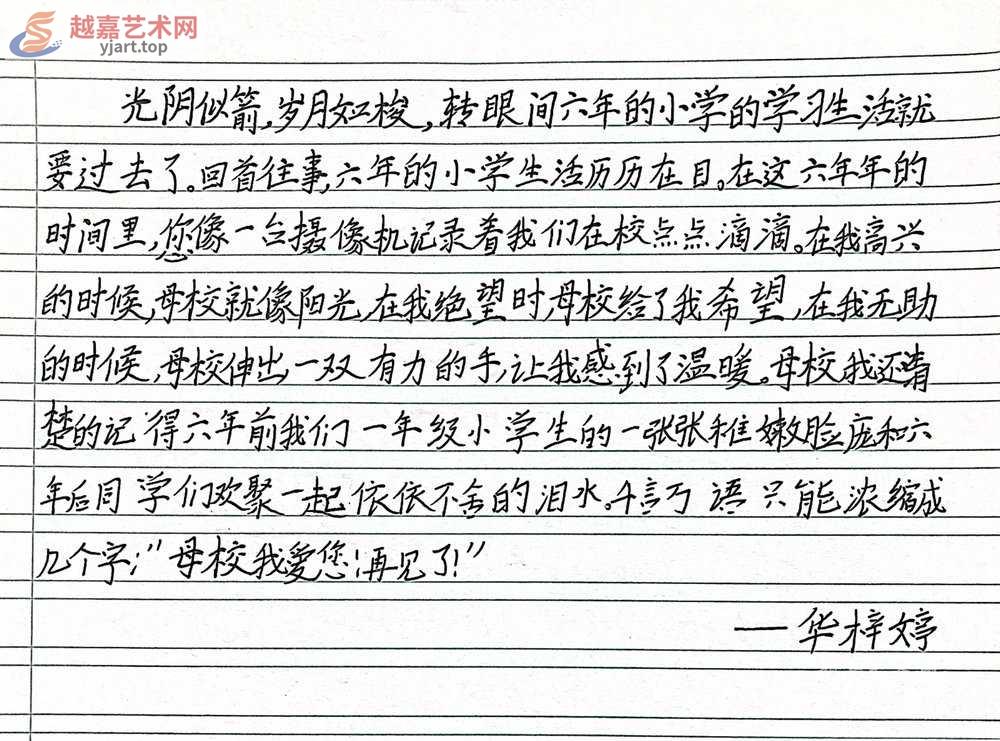 越嘉艺术网
yjart.top
光阴似箭,岁月如梭,转眼间六年的小学的学习生活就
要过去了。回首往事,六年的小学生活历历在目。在这六年年的
时间里,您像一台摄像机记录着我们在校点点滴滴。在我高兴
的时候,母校就像阳光,在我绝望时,母校给了我希望,在我无助
的时候,母校伸出一双有力的手,让我感到了温暖。母校我还清
楚的记得六年前我们一年级小学生的一张张稚嫩脸庞和六
年后同学们欢聚一起依依不舍的泪水。千言万语只能浓缩成
几个字:"母校我爱您!再见了!"
——华梓婷